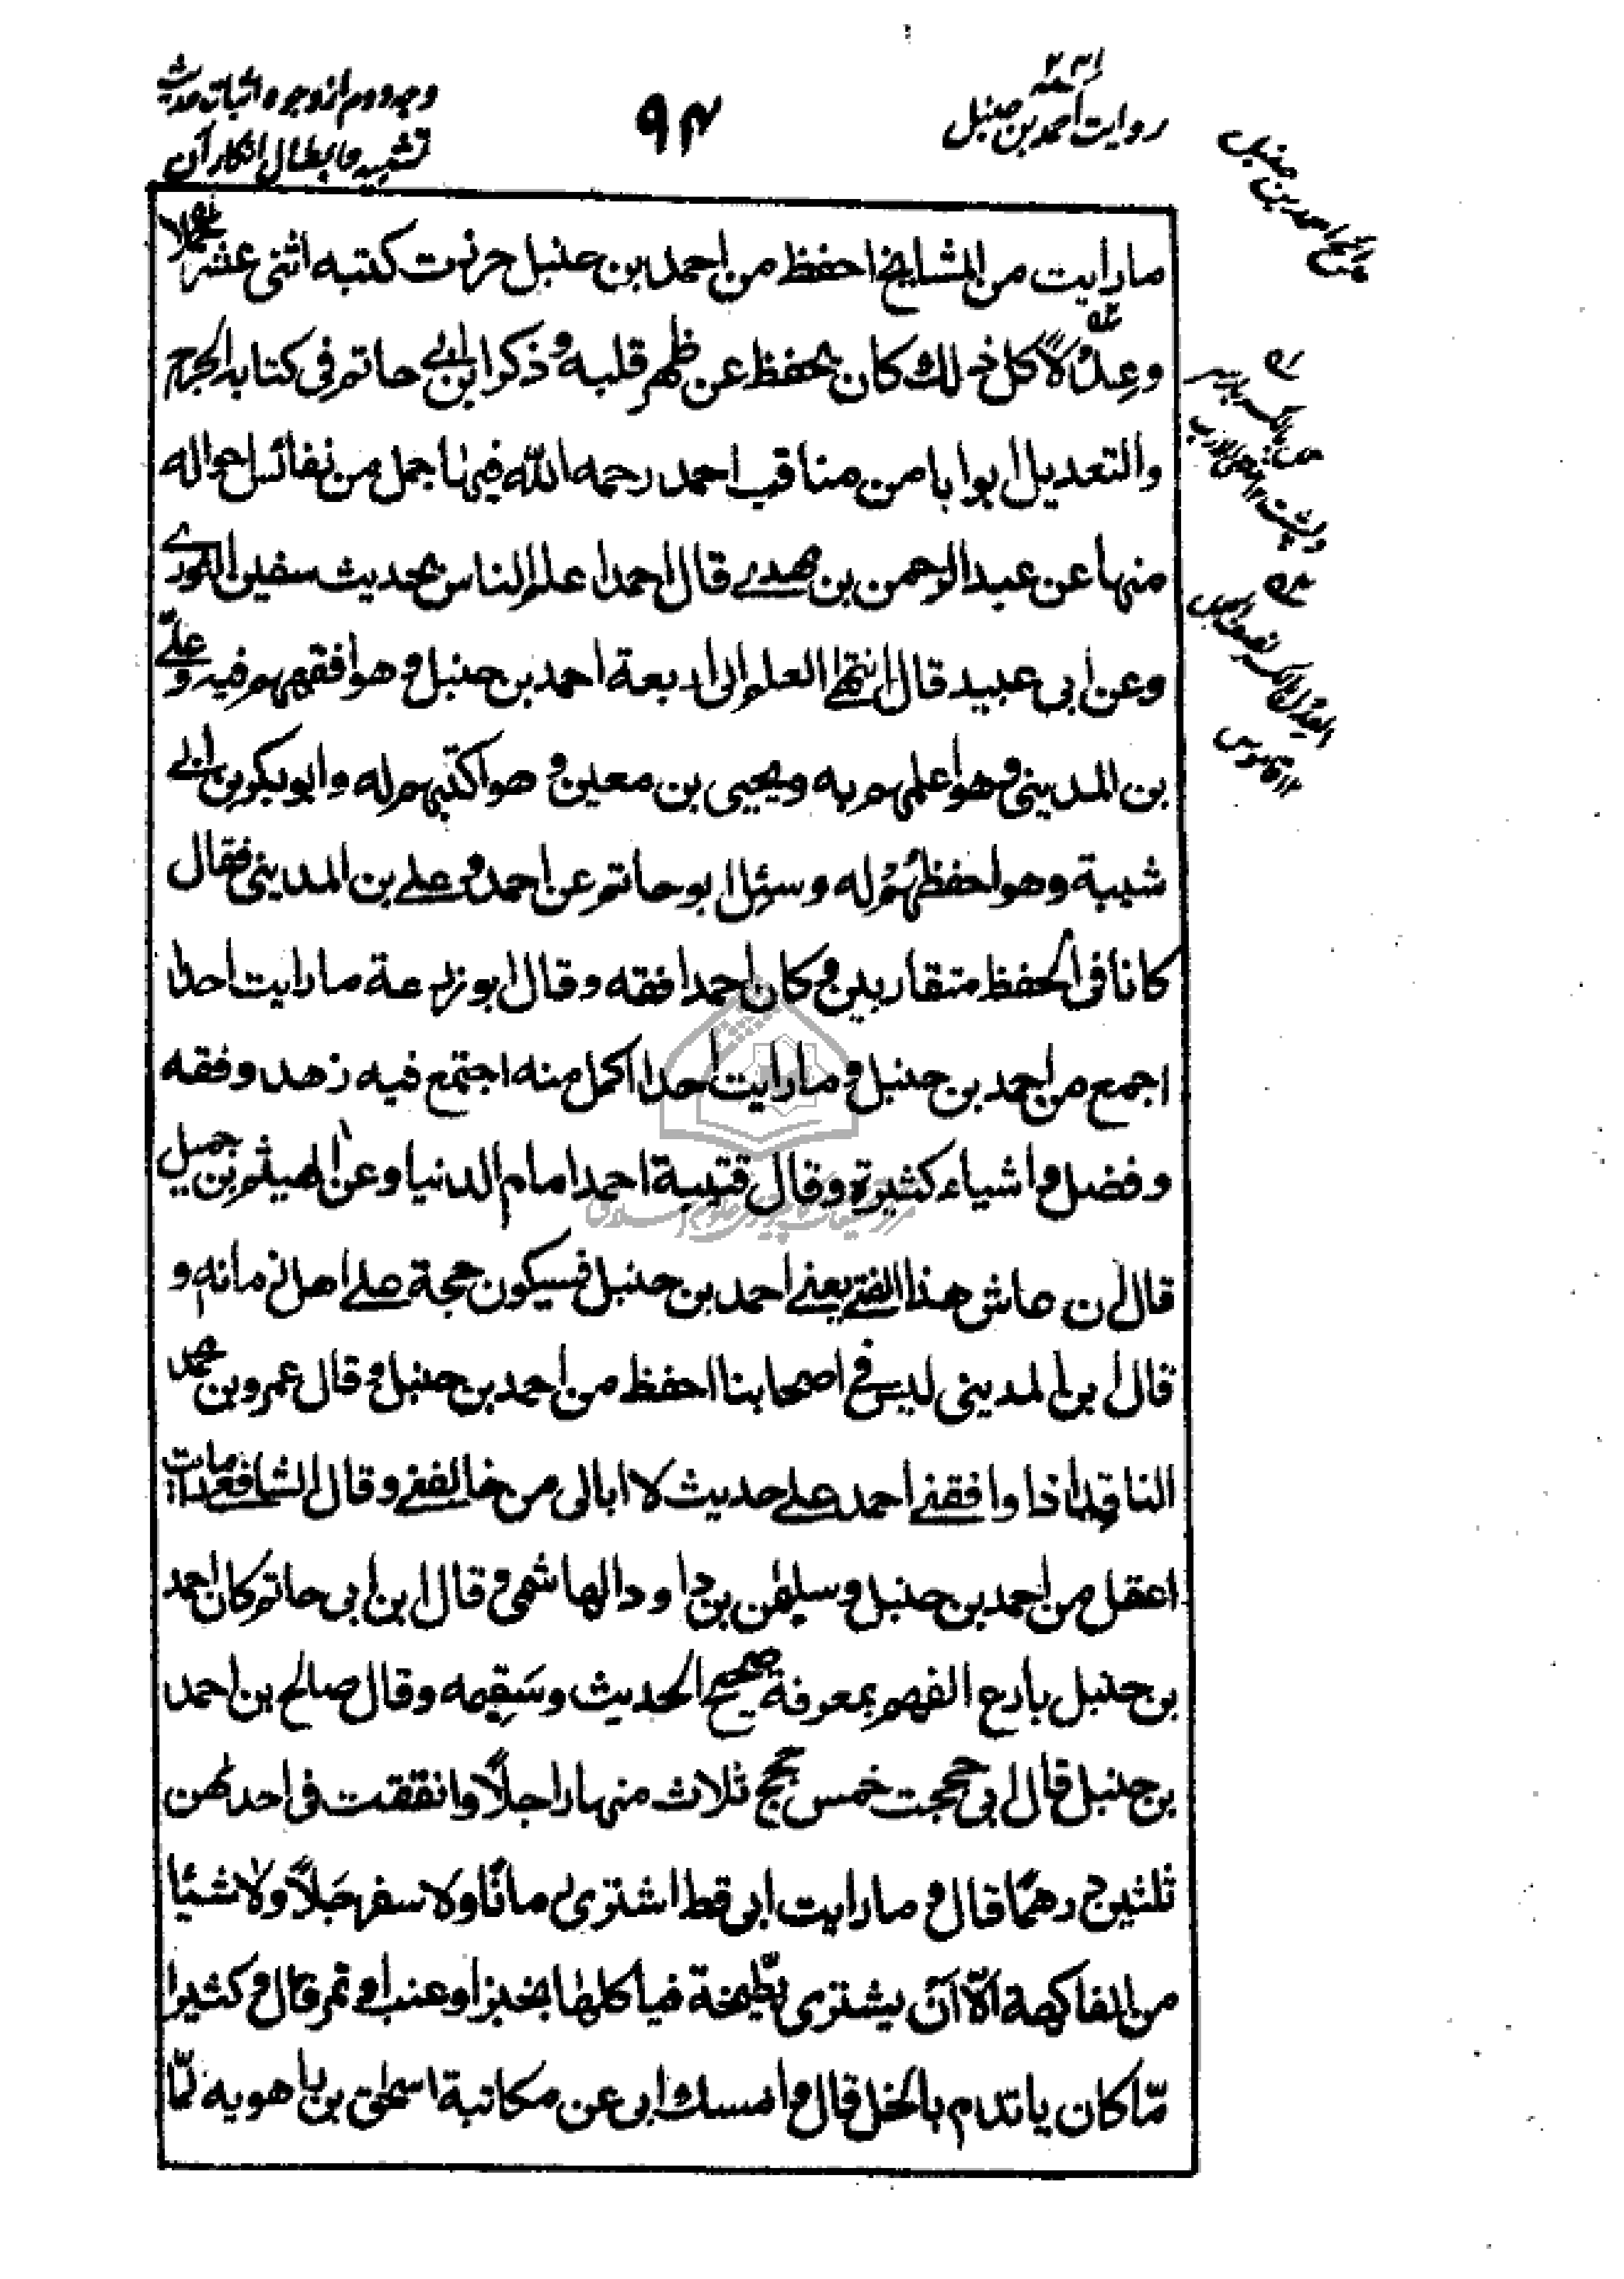 روایت احمد بن حنبل
۹۴
وجه دوم از وجوه اثبات حدیث
تشبیه و ابطال انکار آن
مدائح احمد بن حنبل
ما رايت من المشايخ احفظ من احمد بن حنبل حزرت كتبه اثنى عشر حملا
وعِدْلًا كل ذلك كان يحفظ عن ظهر قلبه و ذكر ابن ابي حاتم في كتابه الجرح
والتعديل ابوابا من مناقب احمد رحمه الله فيها جمل من نفائس احواله
منها عن عبد الرحمن بن مهدي قال احمد اعلم الناس بحديث سفين الثوري
وعن ابى عبيد قال انتهى العلم الى اربعة احمد بن حنبل و هو افقههم فيه و علي
بن المدينى و هو اعلمهم به ويحيى بن معين و هو اكتبهم له وابو بكر بن ابي
شيبة وهو احفظهُمْ له وسئل ابو حاتم عن احمد و علي بن المدينى فقال
كانا فى الحفظ متقاربين و كان احمد افقه وقال ابو زرعة ما رايت احدا
اجمع من احمد بن حنبل و ما رايت احدا اكمل منه اجتمع فيه زهد وفقه
وفضل و اشياء كثيرة وقال قتيبة احمد امام الدنيا وعن الهيثم بن جميل
قال ان عاش هذا الفتى يعني احمد بن حنبل فسيكون حجة على اهل زمانه و
قال ابن المدينى ليس في اصحابنا احفظ من احمد بن حنبل و قال عمرو بن محمد
الناقد اذا وافقني احمد على حديث لا ابالى من خالفني وقال الشافعي ما رايت
اعقل من احمد بن حنبل و سليمٰن بن داود الهاشمى و قال ابن ابى حاتم كان احمد
بن حنبل بارع الفهم بمعرفة صحيح الحديث وسَقِيمه وقال صالح بن احمد
بن حنبل قال ابى حججت خمس حجج ثلاث منها راجلًا وانفقت فى احدٰهن
ثلثين درهمًا قال و ما رايت ابى قط اشترى رمانًا ولا سفرجلًا ولا شيئا
من الفاكهة الّا اَنْ يشترى بطّيخة فياكلها بخبز او عنب او تمر قال و كثيرا
مّا كان ياتدم بالخل قال و امسك ابى عن مكاتبة اسحٰق بن راهويه لمّا